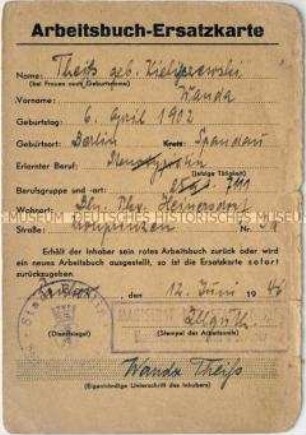 Arbeitsbuch-Ersatzkarte
Name: Theiß geb.
(bei Frauen auch Geburtsname)
Vorname: Wanda
Geburtstag: 6. April 1902
Geburtsort: Berlin Kreis Spandau
Erlernter Beruf: Stenotypistin
(jetzige Tätigkeit)
Berufsgruppe und -art:
MUSEUM DEUTSCHES HISTORISCHES MUSEUM
Wohnort: Bln. Heinersdorf
Straße: Kronprinzen Nr.
Erhält der Inhaber sein rotes Arbeitsbuch zurück oder wird
ein neues Arbeitsbuch ausgestellt, so ist die Ersatzkarte sofort
zurückzugeben.
, den 12. Juni 19
(Dienstsiegel) (Stempel der Arbeitsstelle)
Wanda Theiß
(Eigenhändige Unterschrift des Inhabers)